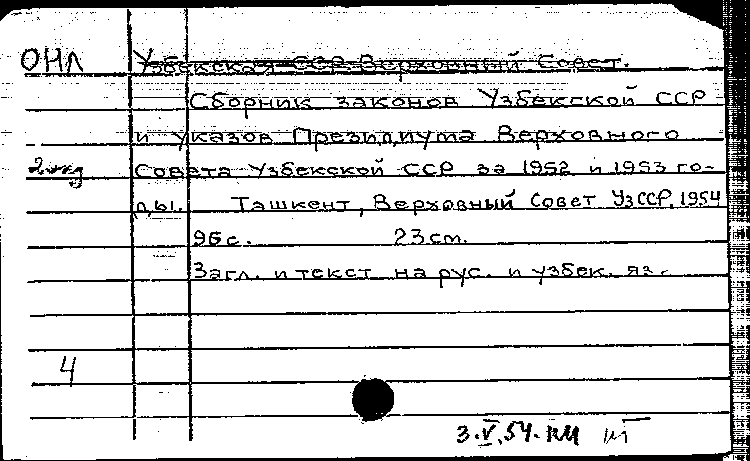 ОНЛ
Узбекская ССР Верховный Совет.
Сборник законов Узбекской ССР
и указов Президиума Верховного
2 экз
Совета Узбекской ССР за 1952 и 1953 го-
ды. Ташкент, Верховный Совет УзССР, 1954
96 с. 23 см.
Загл. и текст на рус. и узбек. яз.
4
3.V.54.